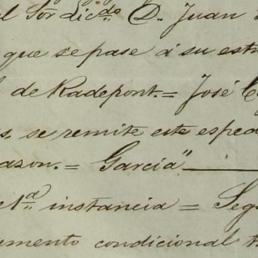 el Sor dicdo D. Juan
que se pase á su est
l de Radepont.= José C
s, se remite este esped
azon. = Garcia"
Na instancia = Seg
umento condicional t